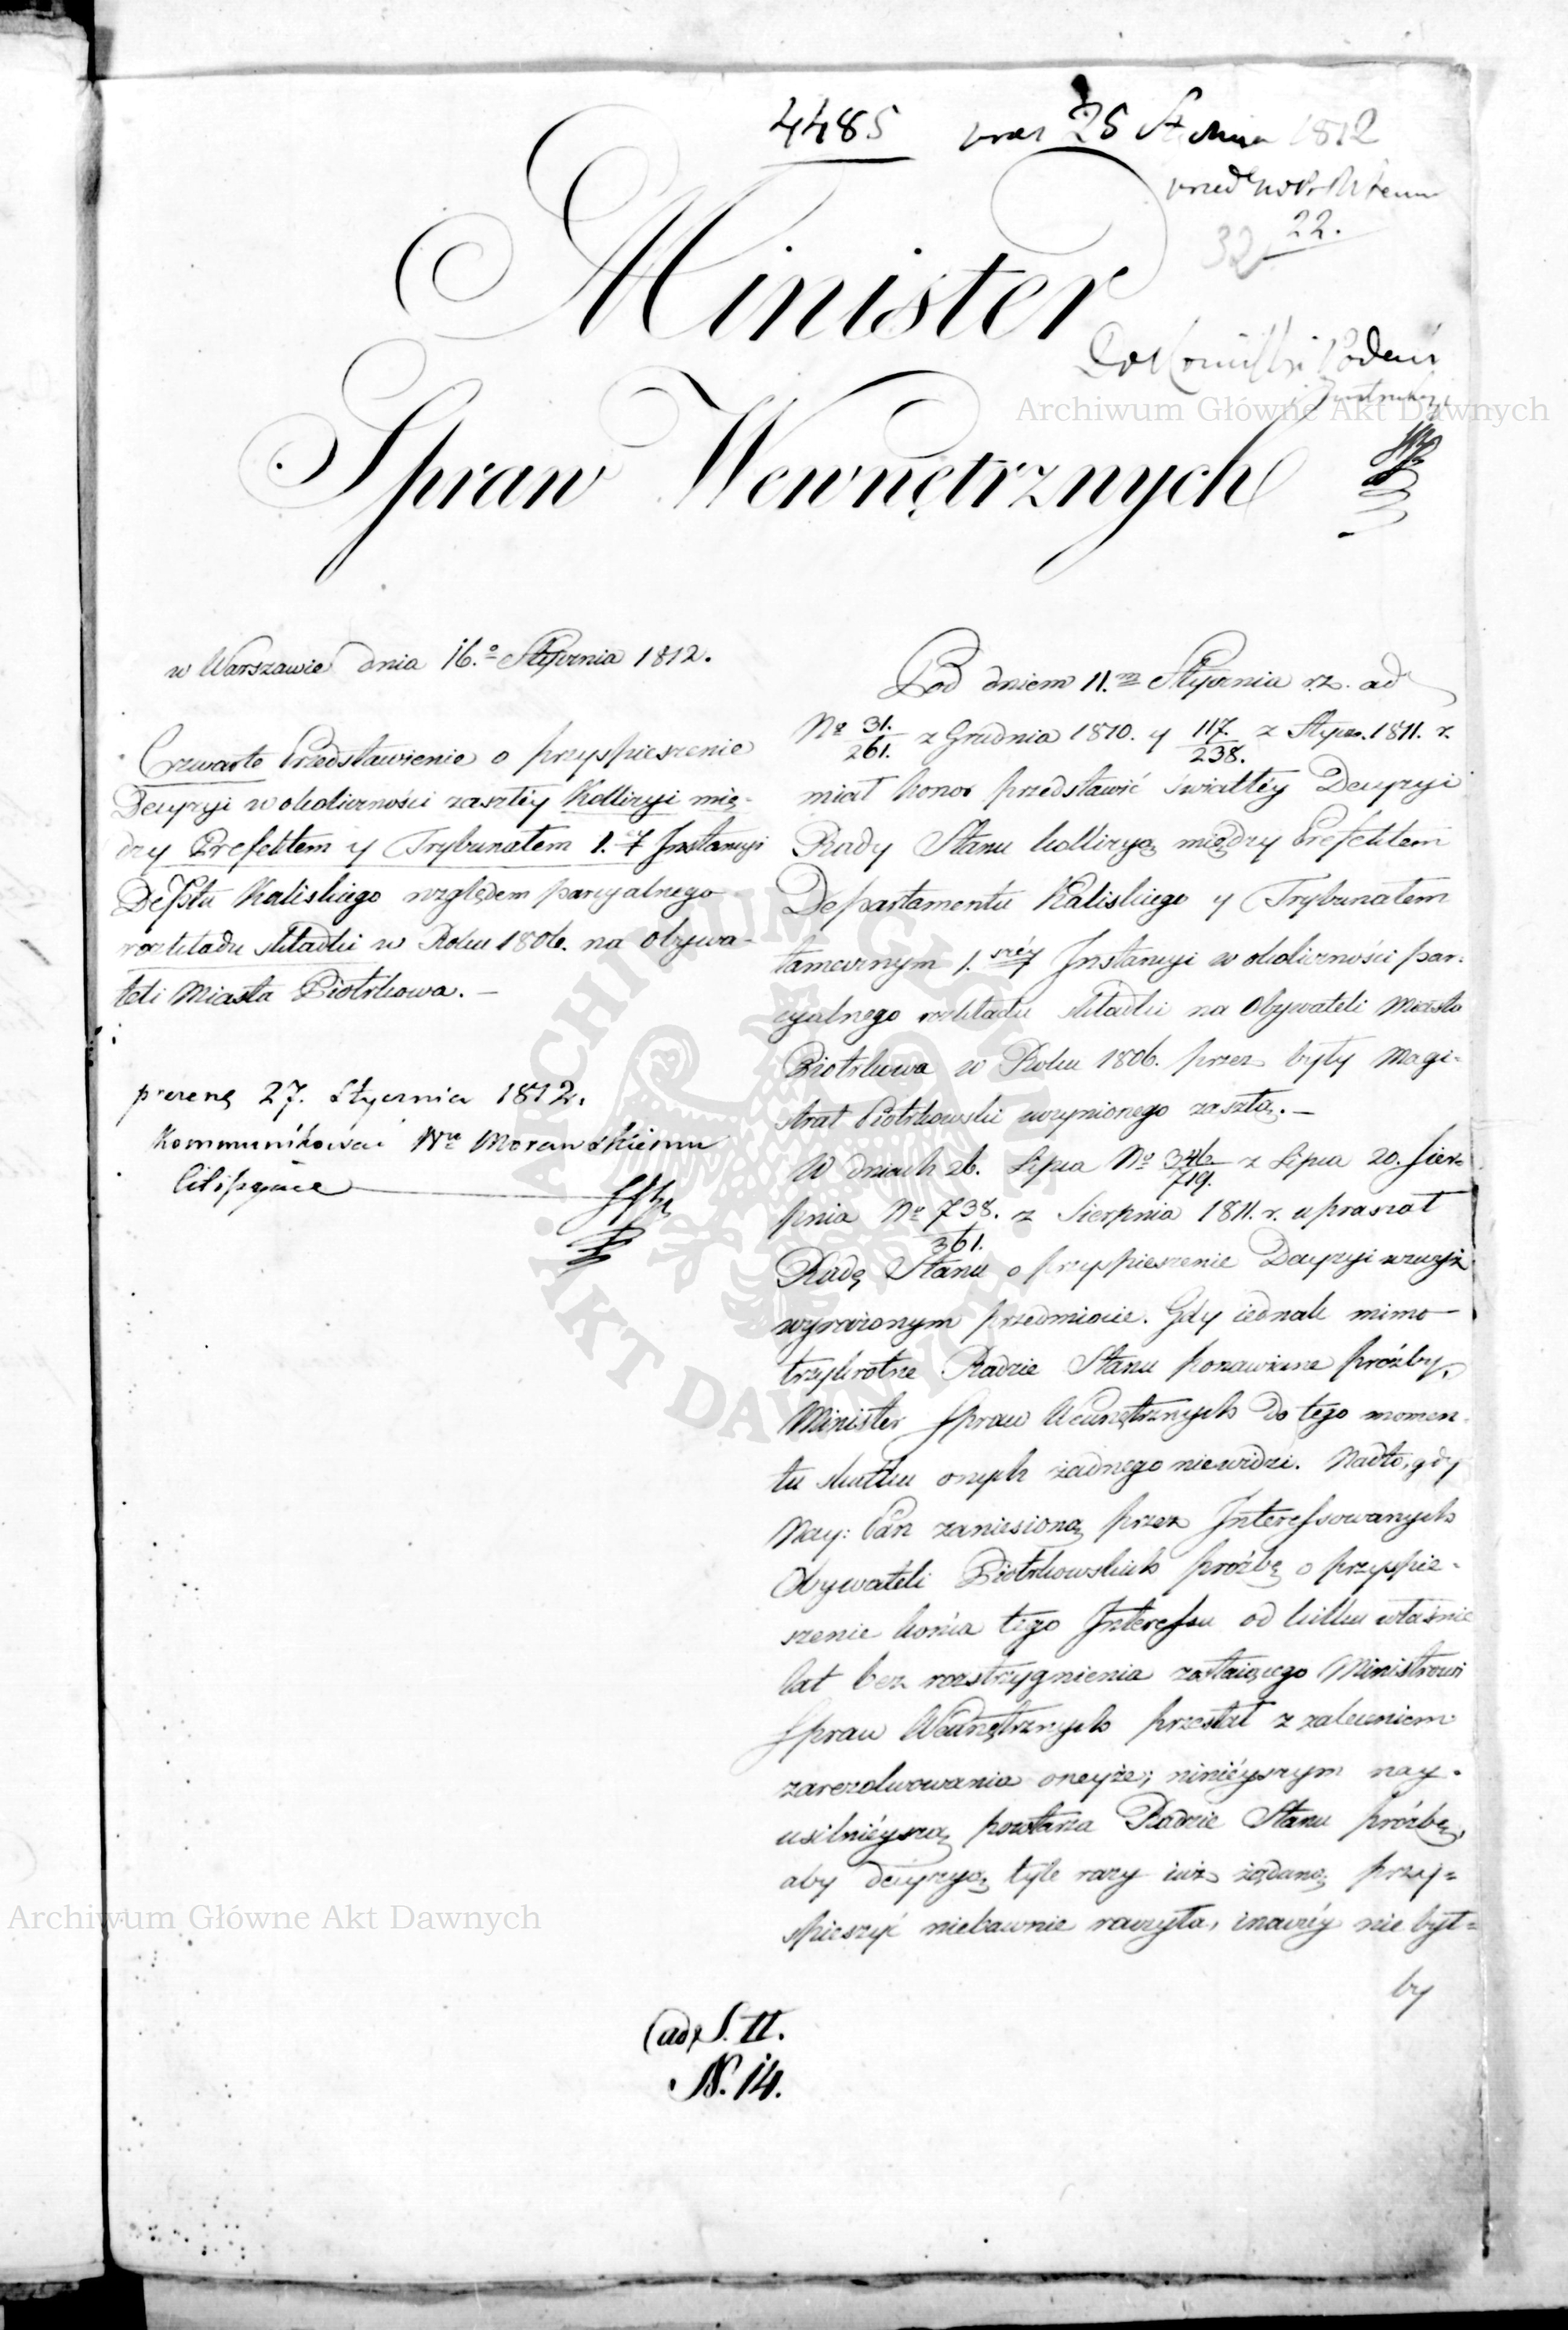 4485 25 1812
22.
32
Minister
Spraw Wewnętrznych
w Warszawie dnia 16.º Stycznia 1812.
Czwarte Przedstawienie o przyspieszenie
Decyzyi w okoliczności zaszłéy Kollizyi mię-
dzy Prefektem y Trybunałem 1. Instancyi
Deptu Kaliskiego względem parcyalnego
rozkładu składki w Roku 1806. na Obywa-
teli Miasta Piotrkowa. —
27. Stycznia 1812.
Kommunikować Morawskiemu
Pod dniem 11. Stycznia r.z. ad
Nº 31./261. z Grudnia 1810. y 117./238. z Stycz. 1811. r.
miał honor przedstawić światłéy Decyzyi
Rady Stanu kollizyą między Prefektem
Departamentu Kaliskiego y Trybunałem
tamecznym 1. széy Instancyi w okoliczności par-
cyalnego rozkładu składki na Obywateli Miasta
Piotrkowa w Roku 1806. przez były Magi-
strat Piotrkowski uczynionego zaszłą. —
W dniach 26. Lipca Nº 346/719. z Lipca 20. Sier-
pnia Nº 738./361. z Sierpnia 1811. r. upraszał
Radę Stanu o przyspieszenie Decyzyi w
wyrażonym przedmiocie. Gdy iednak mimo
trzykrotne Radzie Stanu ponawiane próźby,
Minister Spraw Wewnętrznych do tego momen-
tu skutku onych żadnego niewidzi. Nadto, gdy
Nay: Pan zaniesioną przez Interessowanych
Obywateli Piotrkowskich próźbę o przyspie-
szenie końca tego Interessu od kilku właśnie
lat bez rozstrzygnienia zostaiącego Ministrowi
Spraw Wewnętrznych przesłał z zaleceniem
zarezolwowania oneyże; niniéyszym nay-
usilniéyszą powtarza Radzie Stanu próźbę,
aby decyzyą tyle razy iuż żądaną przy-
spieszyć niebawnie raczyła, inaczéy nie był-
by
(ad) S. II.
N. 14.
Archiwum Główne Akt Dawnych
Archiwum Główne Akt Dawnych
ARCHIWUM GŁÓWNE
AKT DAWNYCH